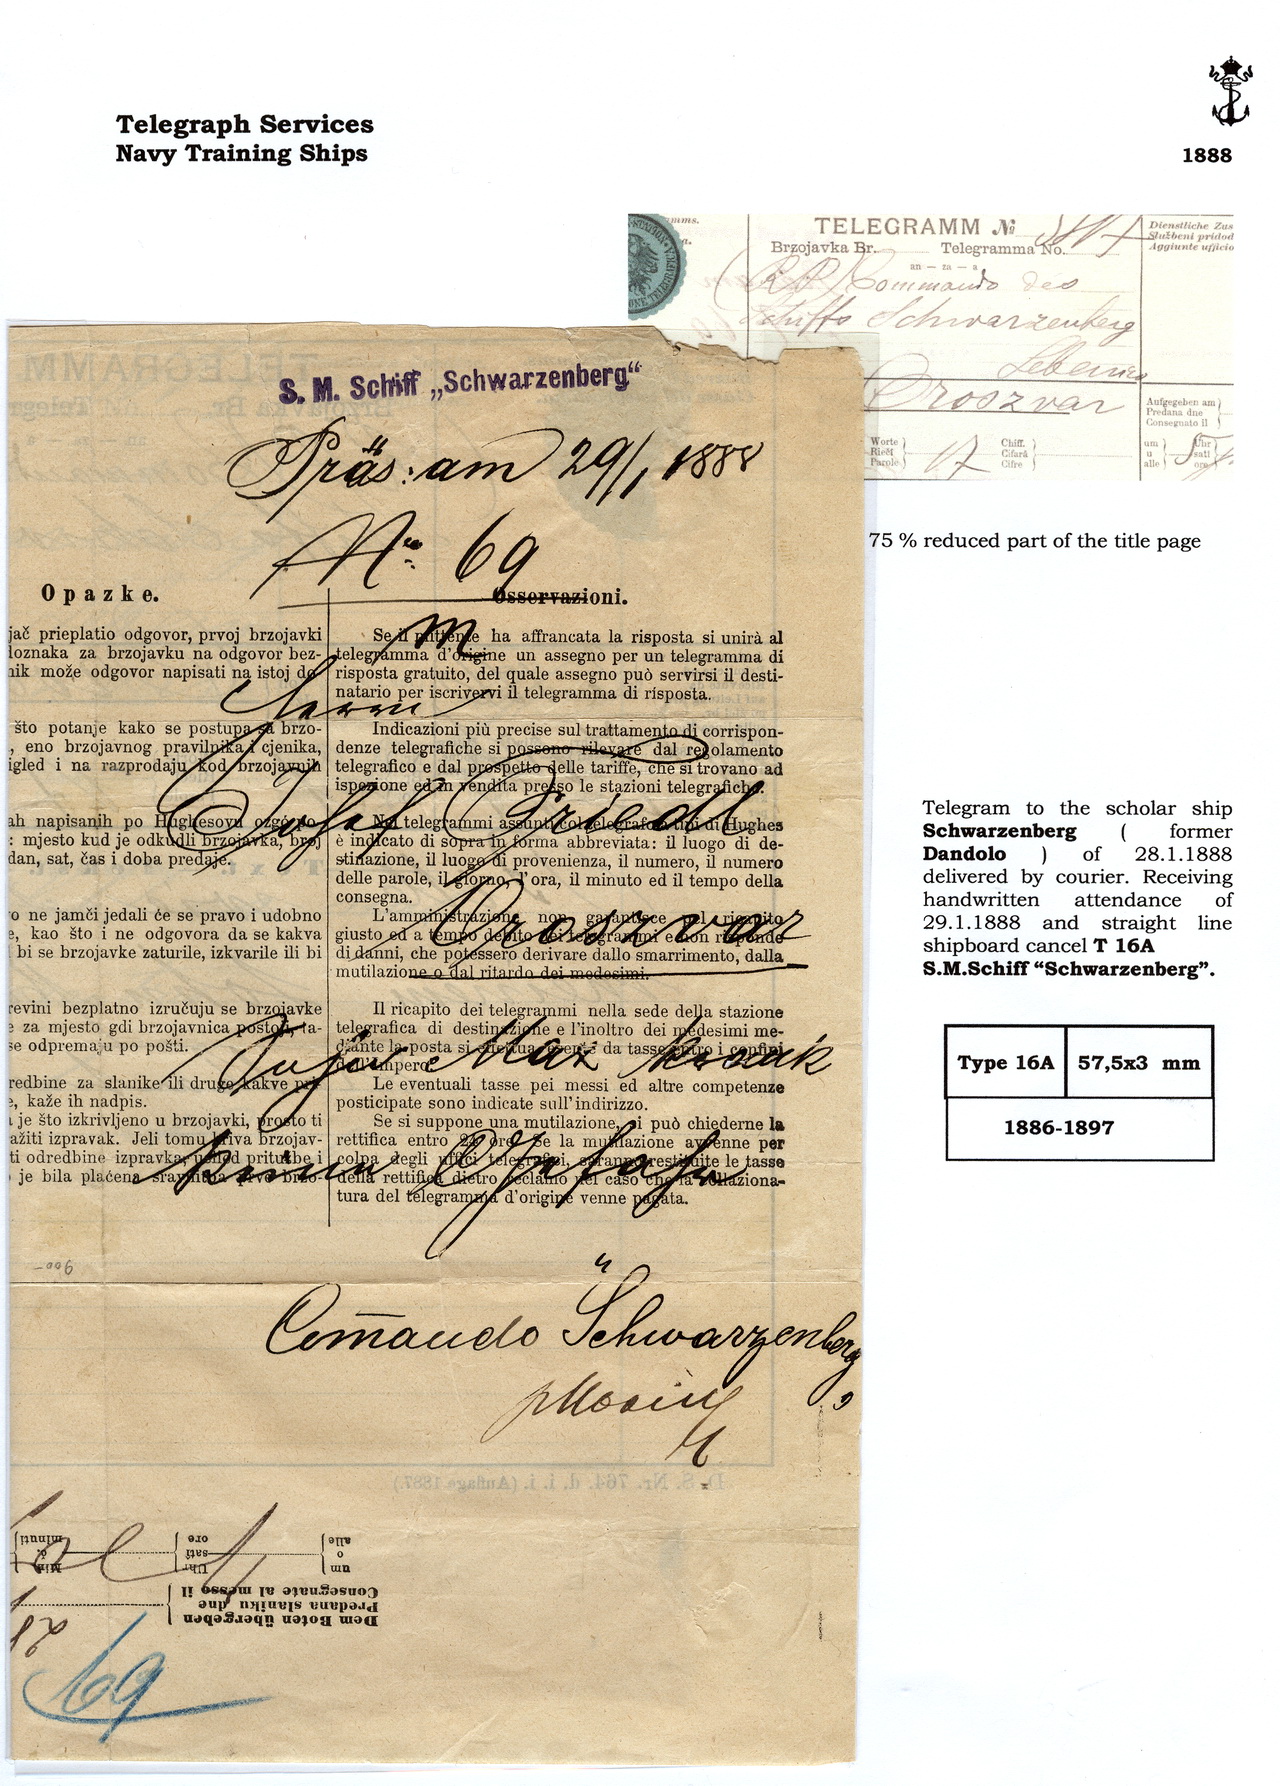 Telegraph Services
Navy Training Ships
1888
TELEGRAMM №
Brzojavka Br. Telegramma No.
an — za — a
(R.P.) Commando des
Schiffs Schwarzenberg
Sebenico
Oroszvar
Dienstliche Zus
Službeni pridod
Aggiunte ufficio
Aufgegeben am
Predana dne
Consegnato il
Worte
Rieči
Parole
17
Chiff.
Cifará
Cifre
um
u
alle
5
Uhr
sati
ore
75 % reduced part of the title page
S. M. Schiff „Schwarzenberg“
Präs: am 29/1 1888
No 69
Opazke.
jač prieplatio odgovor, prvoj brzojavki
doznaka za brzojavku na odgovor bez-
nik može odgovor napisati na istoj do
što potanje kako se postupa sa brzo-
, eno brzojavnog pravilnika i cjenika,
igled i na razprodaju kod brzojavnih
ah napisanih po Hughesovu
: mjesto kud je odkudli brzojavka, broj
dan, sat, čas i doba predaje.
o ne jamči jedali će se pravo i udobno
e, kao što i ne odgovora da se kakva
bi se brzojavke zaturile, izkvarile ili bi
revini bezplatno izručuju se brzojavke
e za mjesto gdi brzojavnica postoji, ta-
se odpremaju po pošti.
redbine za slanike ili druge kakve
e, kaže ih nadpis.
je što izkrivljeno u brzojavki, prosto ti
ažiti izpravak. Jeli tomu kriva brzojav-
ti odredbine izpravka, uslied pritužbe i
je bila plaćena brzo-
Osservazioni.
Se il mittente ha affrancata la risposta si unirà al
telegramma d'origine un assegno per un telegramma di
risposta gratuito, del quale assegno può servirsi il desti-
natario per iscrivervi il telegramma di risposta.
Indicazioni più precise sul trattamento di corrispon-
denze telegrafiche si possono rilevare dal regolamento
telegrafico e dal prospetto delle tariffe, che si trovano ad
ispezione ed in vendita presso le stazioni telegrafiche.
Nei telegrammi assunti col telegrafo tipi di Hughes
è indicato di sopra in forma abbreviata: il luogo di de-
stinazione, il luogo di provenienza, il numero, il numero
delle parole, il giorno, l'ora, il minuto ed il tempo della
consegna.
L'amministrazione non garantisce pel ricapito
giusto ed a tempo debito dei telegrammi e non risponde
di danni, che potessero derivare dallo smarrimento, dalla
mutilazione o dal ritardo dei medesimi.
Il ricapito dei telegrammi nella sede della stazione
telegrafica di destinazione e l'inoltro dei medesimi me-
diante la posta si effettua esente da tasse entro i confini
dell'impero.
Le eventuali tasse pei messi ed altre competenze
posticipate sono indicate sull'indirizzo.
Se si suppone una mutilazione, si può chiederne la
rettifica entro 24 ore. Se la mutilazione avvenne per
colpa degli uffici telegrafici, saranno restituite le tasse
della rettifica dietro reclamo nel caso che la collaziona-
tura del telegramma d'origine venne pagata.
Herrn
Josef Friedl
Oroszvar
Max krank
keine Gefahr
Comando Schwarzenberg
D. S. Nr. 764. d. i. i. (Auflage 1887.)
Dem Boten übergeben
Predana slaniku dne
Consegnate al messo il
um
o
alle
Uhr
sati
ore
Min.
č.
minuti
28
69
Telegram to the scholar ship
Schwarzenberg ( former
Dandolo ) of 28.1.1888
delivered by courier. Receiving
handwritten attendance of
29.1.1888 and straight line
shipboard cancel T 16A
S.M.Schiff “Schwarzenberg”.
Type 16A 57,5x3 mm
1886-1897